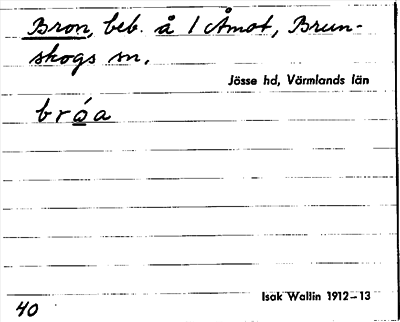 Bron, beb. å 1 Åmot, Brun-
skogs sn.
Jösse hd, Värmlands län
bróa
Isak Wallin 1912-13
40